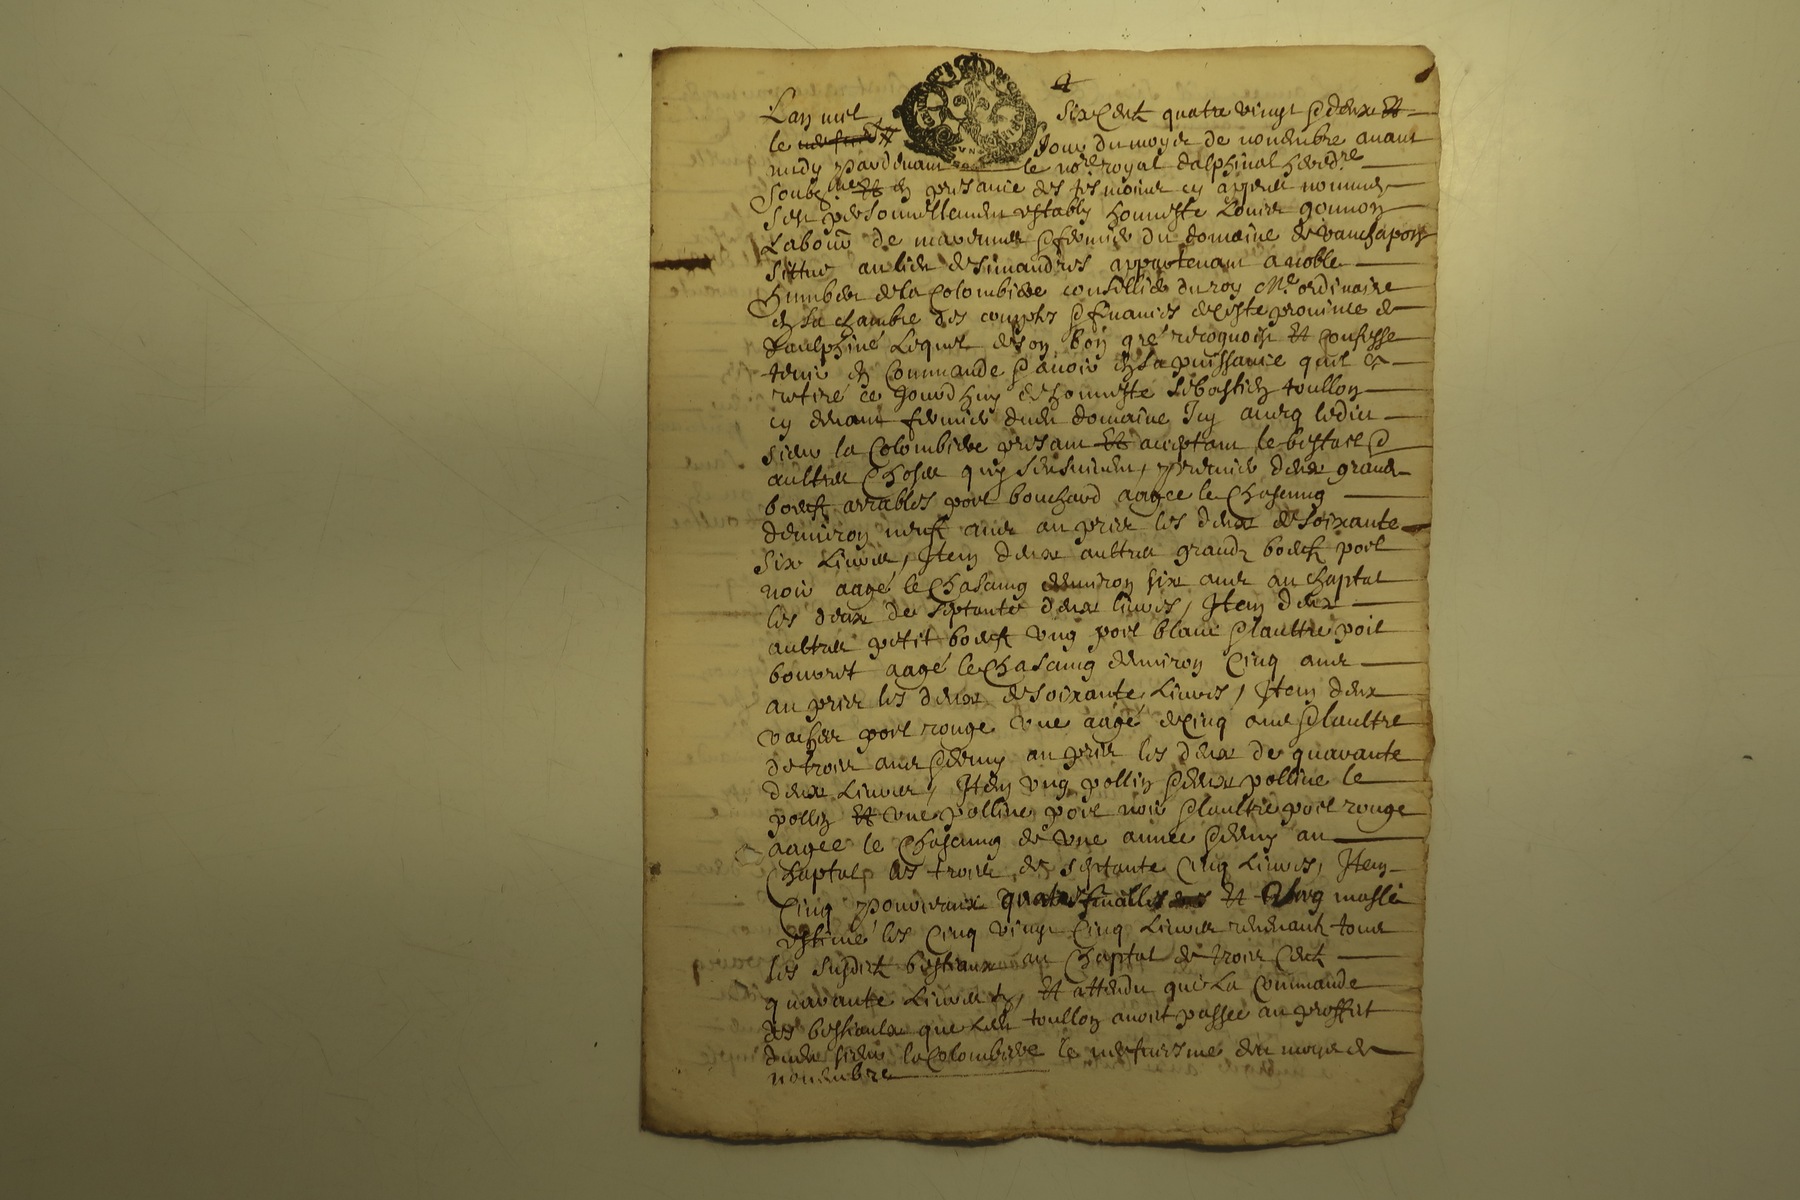 4
Lan mil six cent quatre vingt & deux et
le jour du moyes de novembre avant
midy pardevant le nore royal dalphinal heredre
soubzne et en presance des tesmoins cy apres nommes
sest personnellement estably honneste Louis gonnon
Labour de & fermier du domaine de vauchapon
sittue au lieu de simandres appartenant a noble
humber de la Colombiere conseillier du roy Me ordinaire
en la chambre des comptes & finances de ceste province de
daulphiné Lequel de son bon gré recognoit et confesse
tenir en Commande & avoir en sa puissance quil a
retiré ce jourdhuy de honneste sebastien toullon
cy devant fermier dudit domaine Icy avecq ledit
sieur la Colombiere presant et acceptant le bestail &
aultres choses quy sensuivent, premier deux grands
boeufs arrables poil bouchard aagee le chascung
denviron neuf ans au prix les deux de soixante
six Livres, Item deux aultres grands boeufs poil
noir aagé le chascung denviron six ans au chaptal
les deux de septante deux livres, Item deux
aultres petit boeufs ung poil blanc & laultre poil
bouvret aagé le chascung denviron cinq ans
au prix les deux de soixante Livres, Item deux
vaches poil rouge une aagé de cinq ans & laultre
de trois ans & demy au prix les deux de quarante
deux Livres, Item ung pollin & deux polline le
pollin et une polline poil noir & laultre poil rouge
aagee le chascung de une annee & demy au
chaptal les trois de septante cinq Livres, Item
cinq pourceaux quatre fmalles et ung masle
estimé les cinq vingt cinq Livres revenant tous
les susdits bestiaux au chaptal de trois cent
quarante Livres tz, et attendu que la Commande
des bestiaulx que ledit toullon avoit passee au proffit
dudit sieur la Colombiere le neufviesme du moys de
novembre